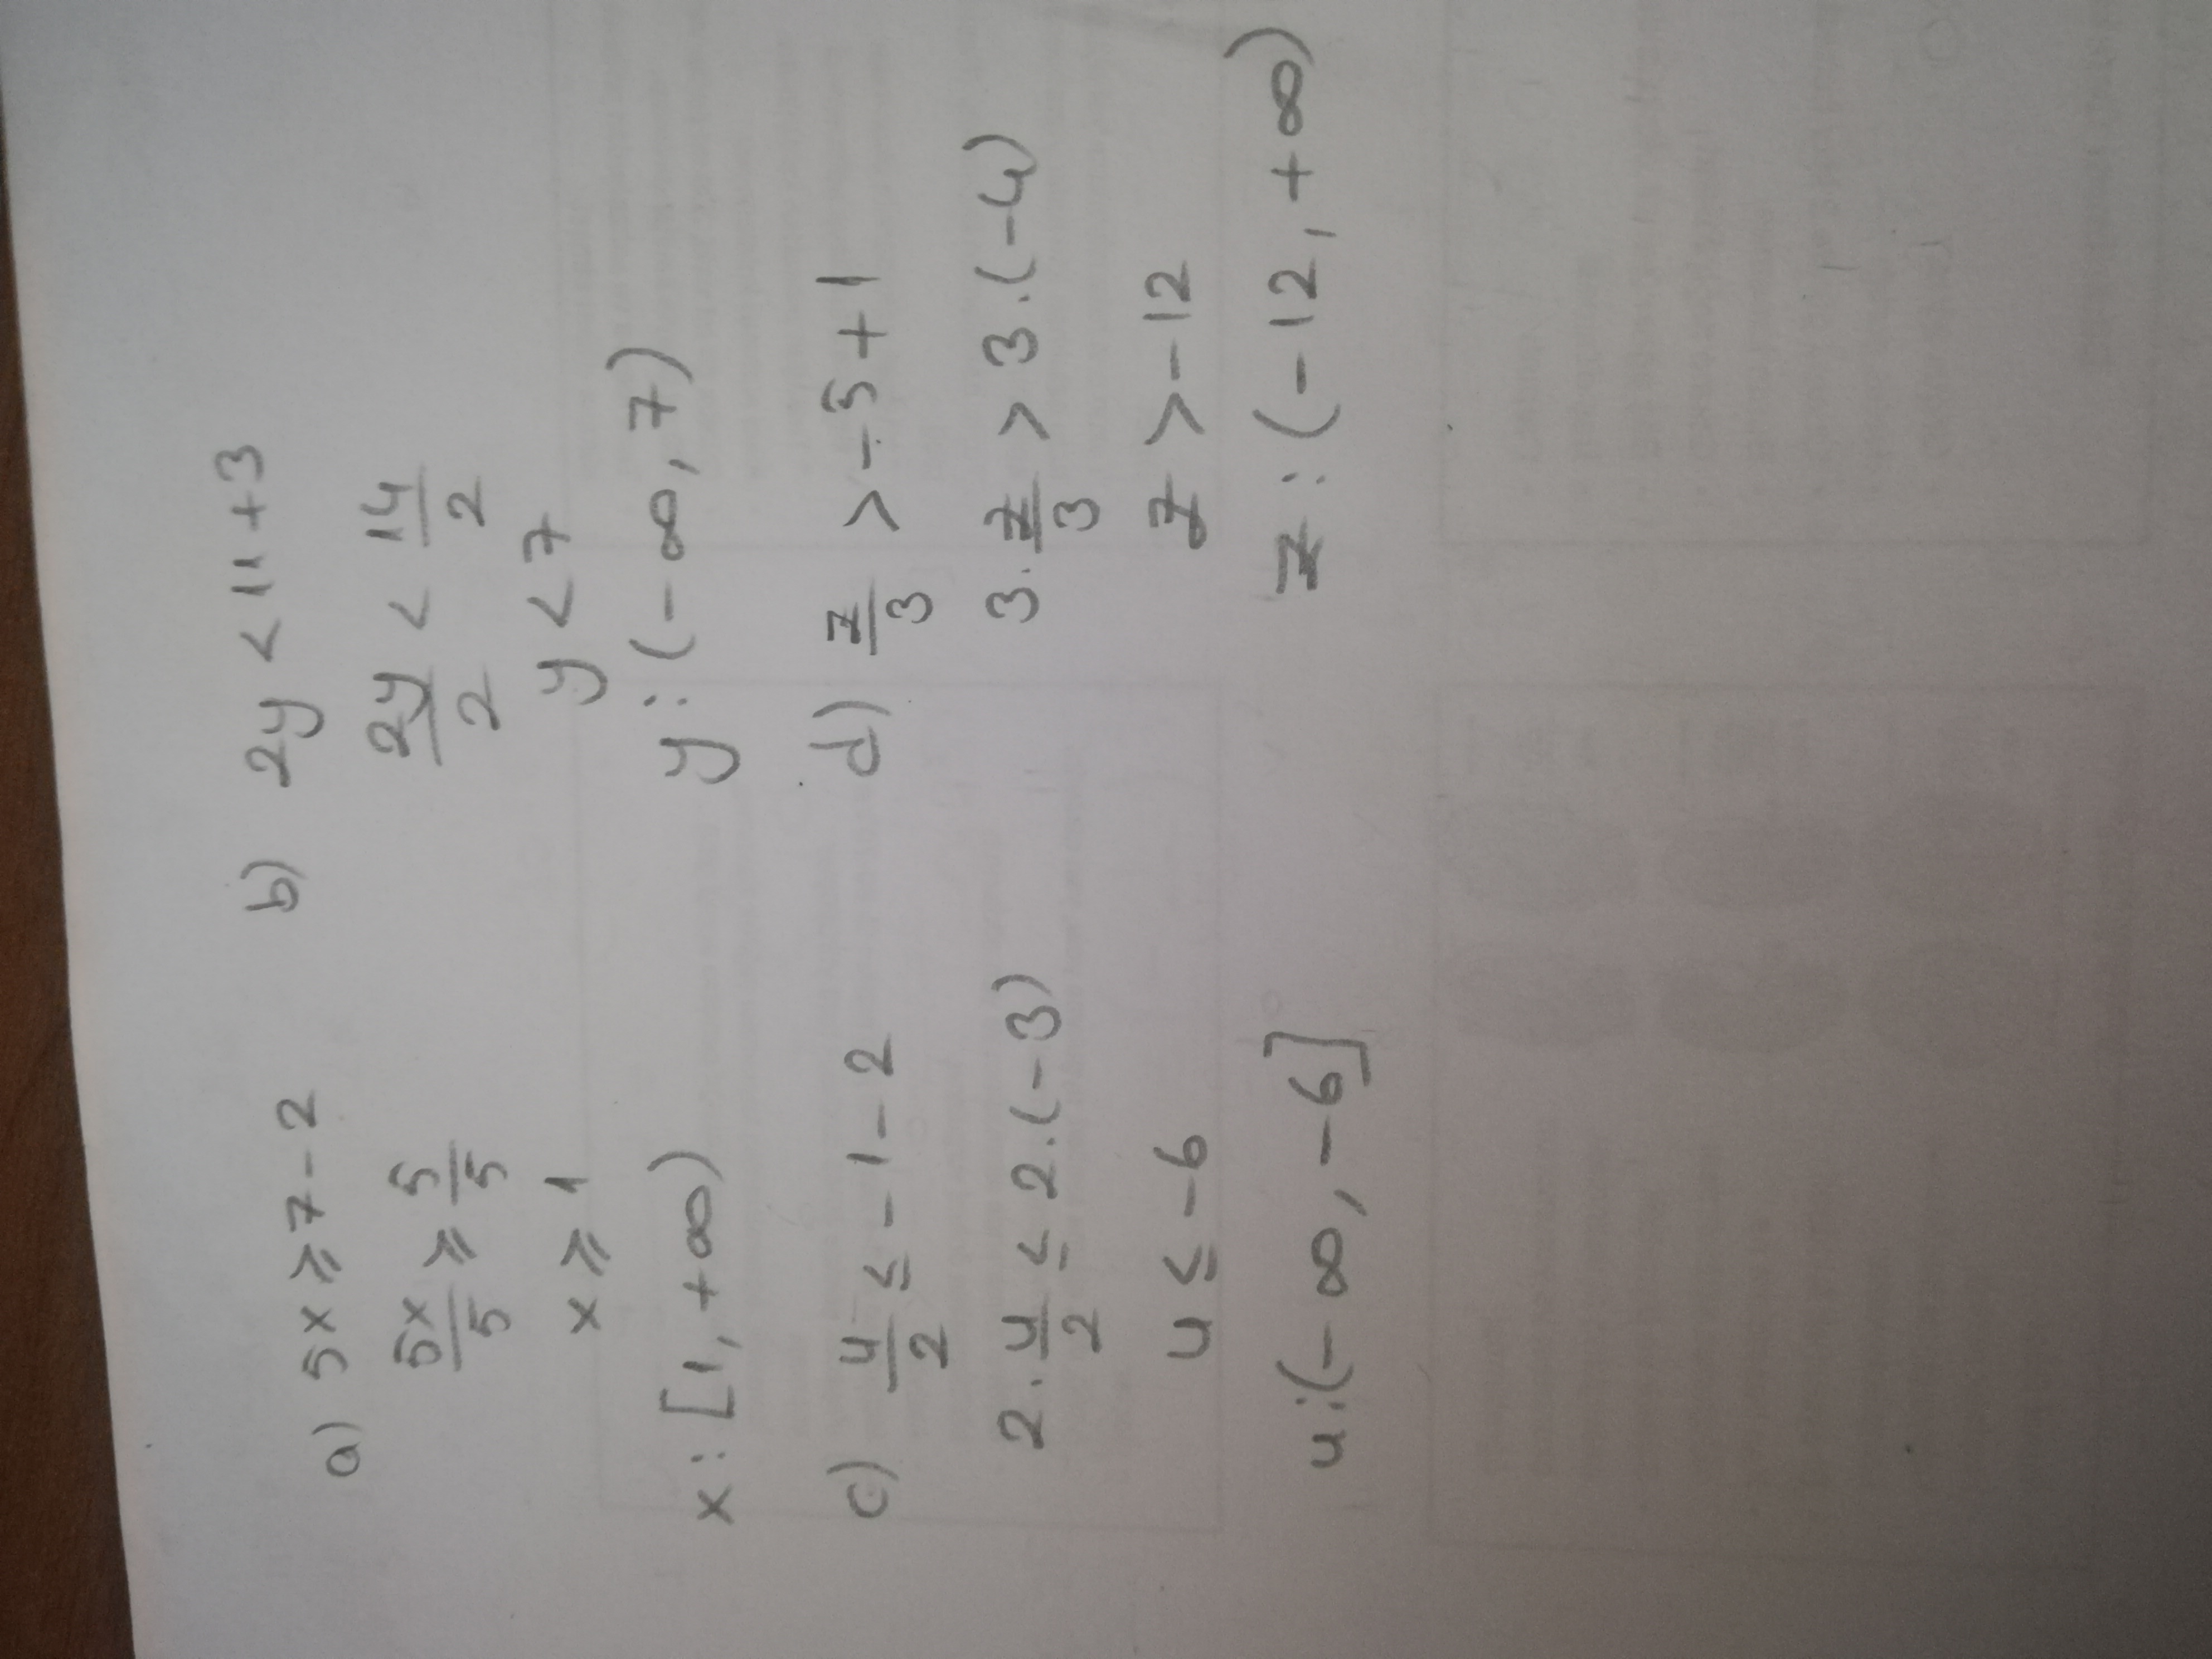 a) 5x ≥ 7 - 2
5x/5 ≥ 5/5
x ≥ 1
x : [1, +∞)
b) 2y < 11 + 3
2y/2 < 14/2
y < 7
y : (-∞, 7)
c) u/2 ≤ -1 - 2
2 . u/2 ≤ 2.(-3)
u ≤ -6
u : (-∞, -6]
d) z/3 > -5 + 1
3 . z/3 > 3.(-4)
z > -12
z : (-12, +∞)